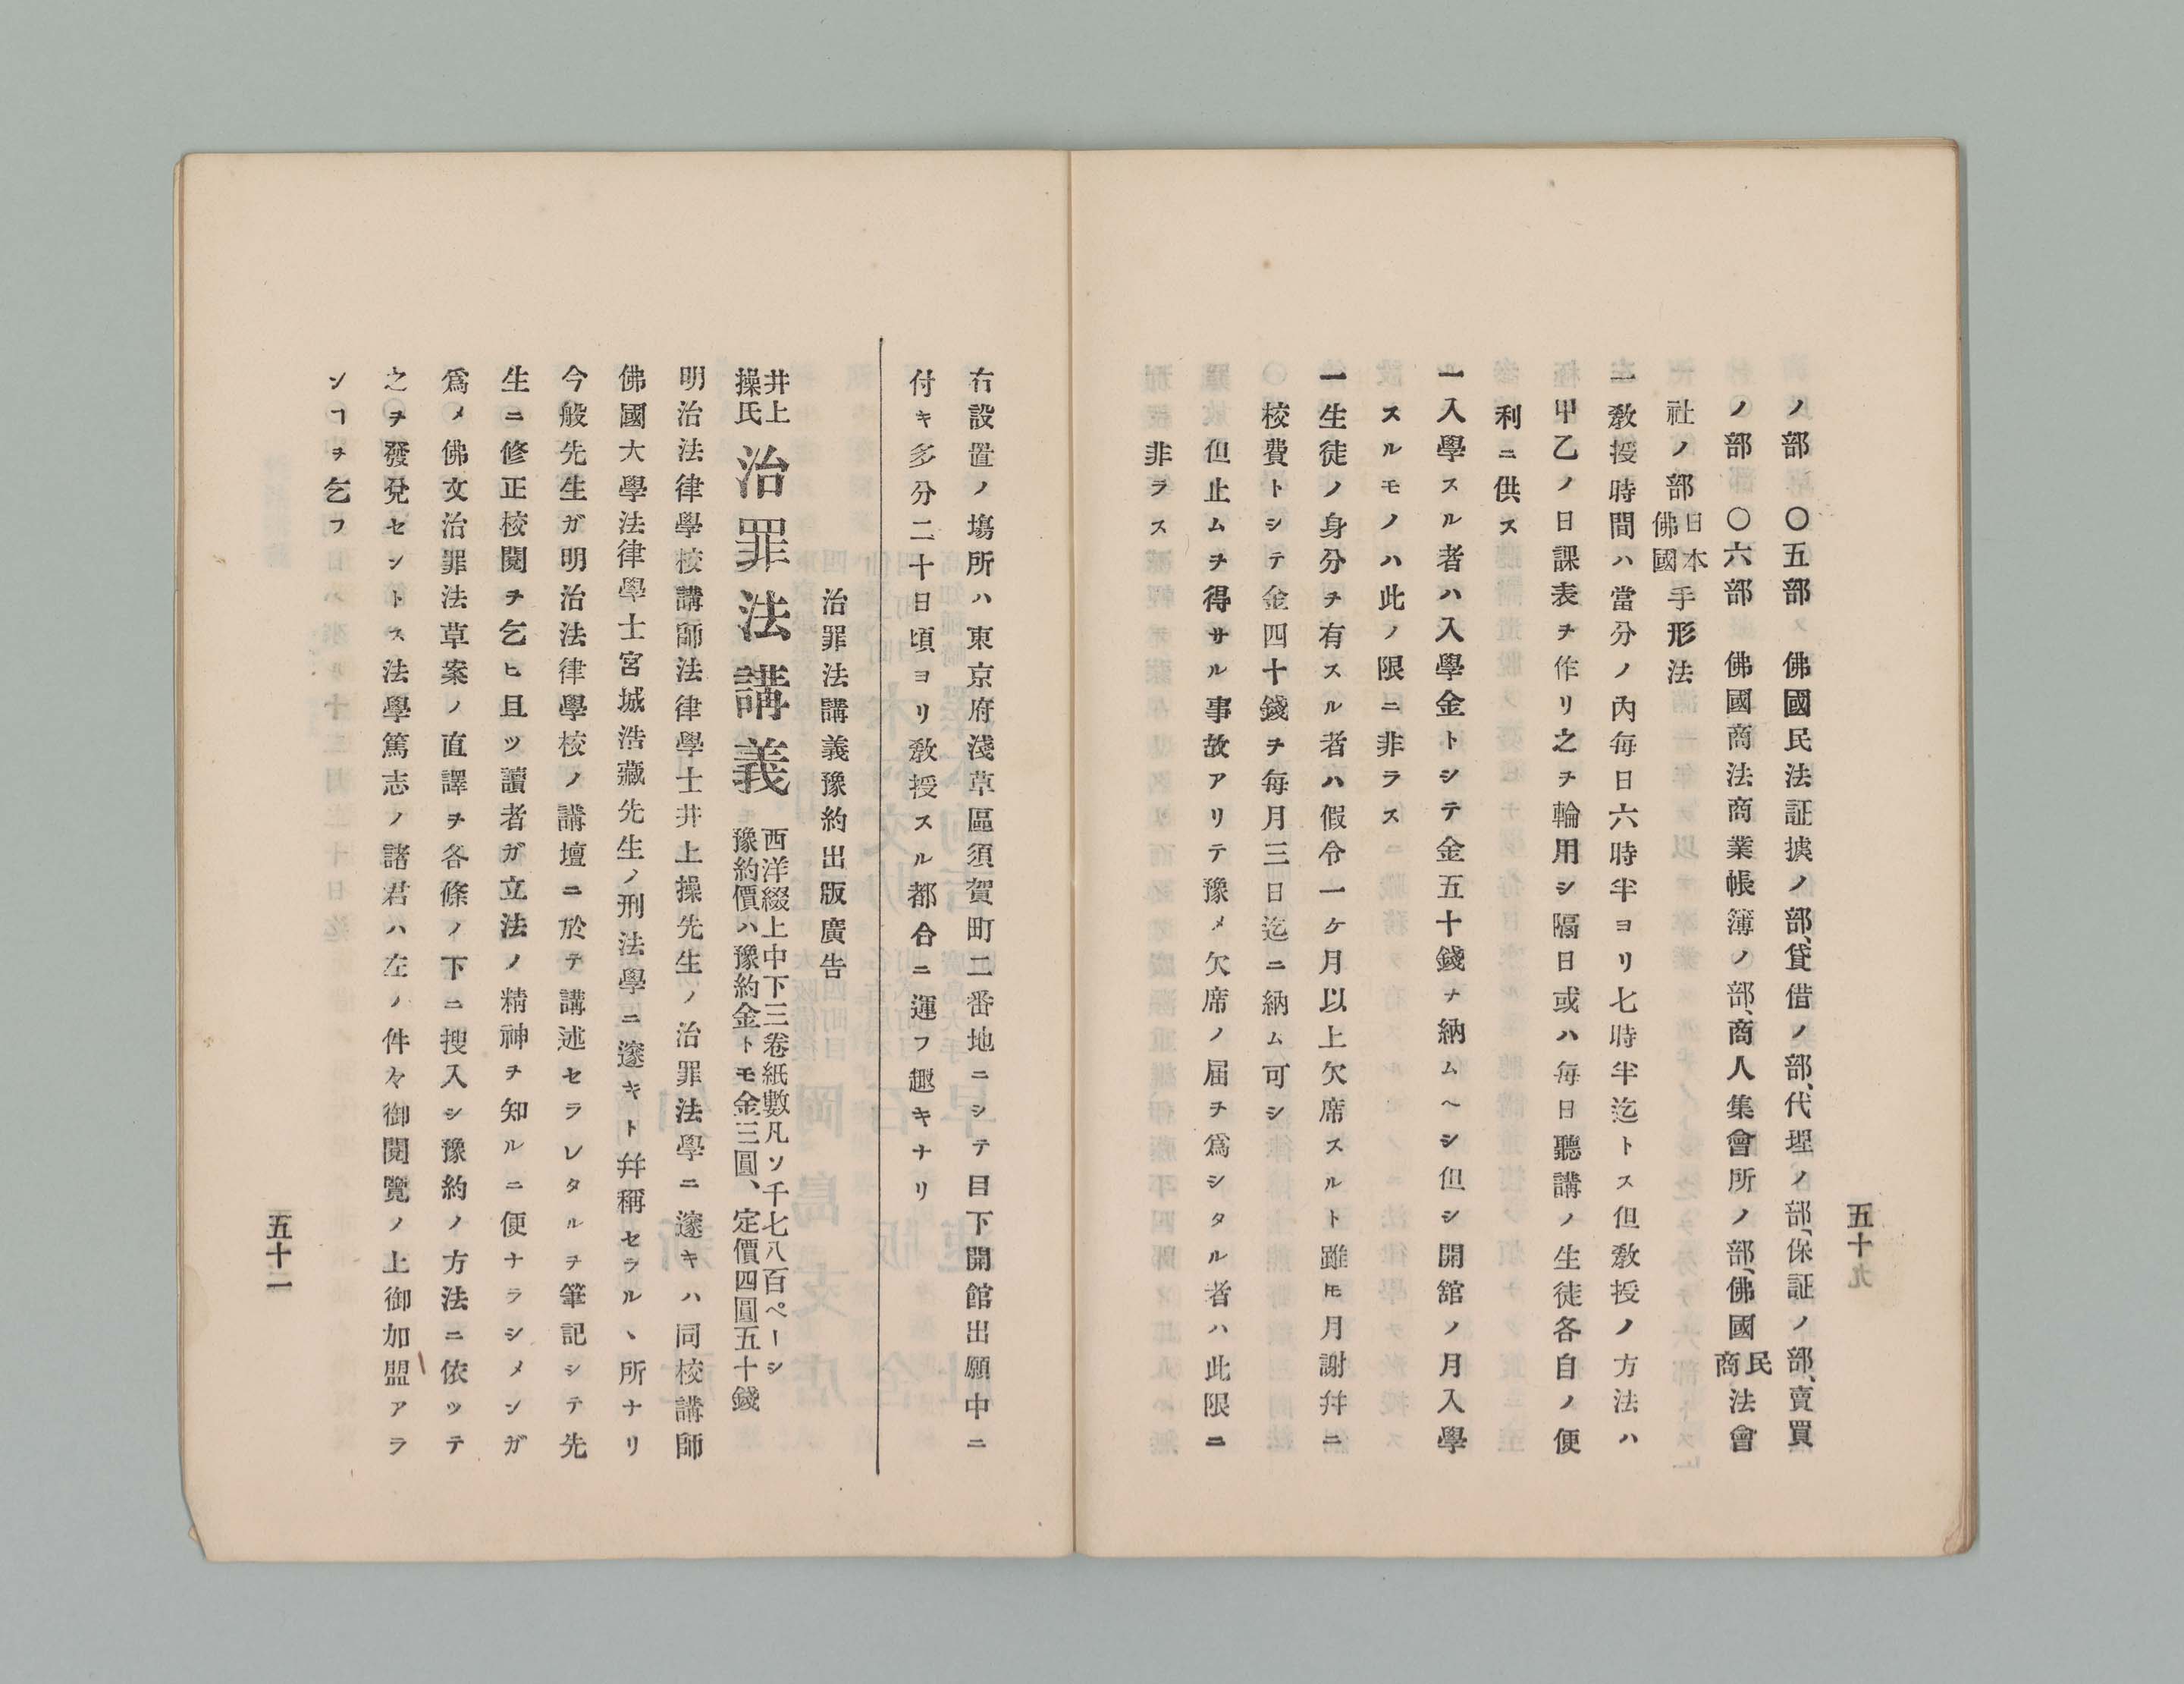 五十九
ノ部〇五部　佛國民法証拠ノ部、貸借ノ部、代理ノ部、保証ノ部、賣買
ノ部〇六部　佛國商法商業帳簿ノ部、商人集會所ノ部、佛國民商法會
社ノ部日本佛國手形法
一敎授時間ハ當分ノ內毎日六時半ヨリ七時半迄トス但敎授ノ方法ハ
甲乙ノ日課表ヲ作リ之ヲ輪用シ隔日或ハ毎日聽講ノ生徒各自ノ便
利ニ供ス
一入學スル者ハ入學金トシテ金五十錢ヲ納ムヘシ但シ開舘ノ月入學
スルモノハ此ノ限ニ非ラス
一生徒ノ身分ヲ有スル者ハ假令一ケ月以上欠席スルト雖𪜈月謝幷ニ
校費トシテ金四十錢ヲ毎月三日迄ニ納ム可シ
但止ムヲ得サル事故アリテ豫メ欠席ノ届ヲ爲シタル者ハ此限ニ
非ラス
右設置ノ塲所ハ東京府淺草區須賀町二番地ニシテ目下開館出願中ニ
付キ多分二十日頃ヨリ敎授スル都合ニ運フ趣キナリ
治罪法講義豫約出版廣告
井上操氏　治罪法講義　西洋綴上中下三卷紙數凡ソ千七八百ペーシ
豫約價ハ豫約金トモ金三圓、定價四圓五十錢
明治法律學校講師法律學士井上操先生ノ治罪法學ニ邃キハ同校講師
佛國大學法律學士宮城浩藏先生ノ刑法學ニ邃キト幷稱セラルヽ所ナリ
今般先生ガ明治法律學校ノ講壇ニ於テ講述セラレタルヲ筆記シテ先
生ニ修正校閱ヲ乞ヒ且ツ讀者ガ立法ノ精神ヲ知ルニ便ナラシメンガ
爲メ佛文治罪法草案ノ直譯ヲ各條ノ下ニ搜入シ豫約ノ方法ニ依ッテ
之ヲ發兌セントス法學篤志ノ諸君ハ左ノ件々御閱覽ノ上御加盟アラ
ンヿヲ乞フ
五十一